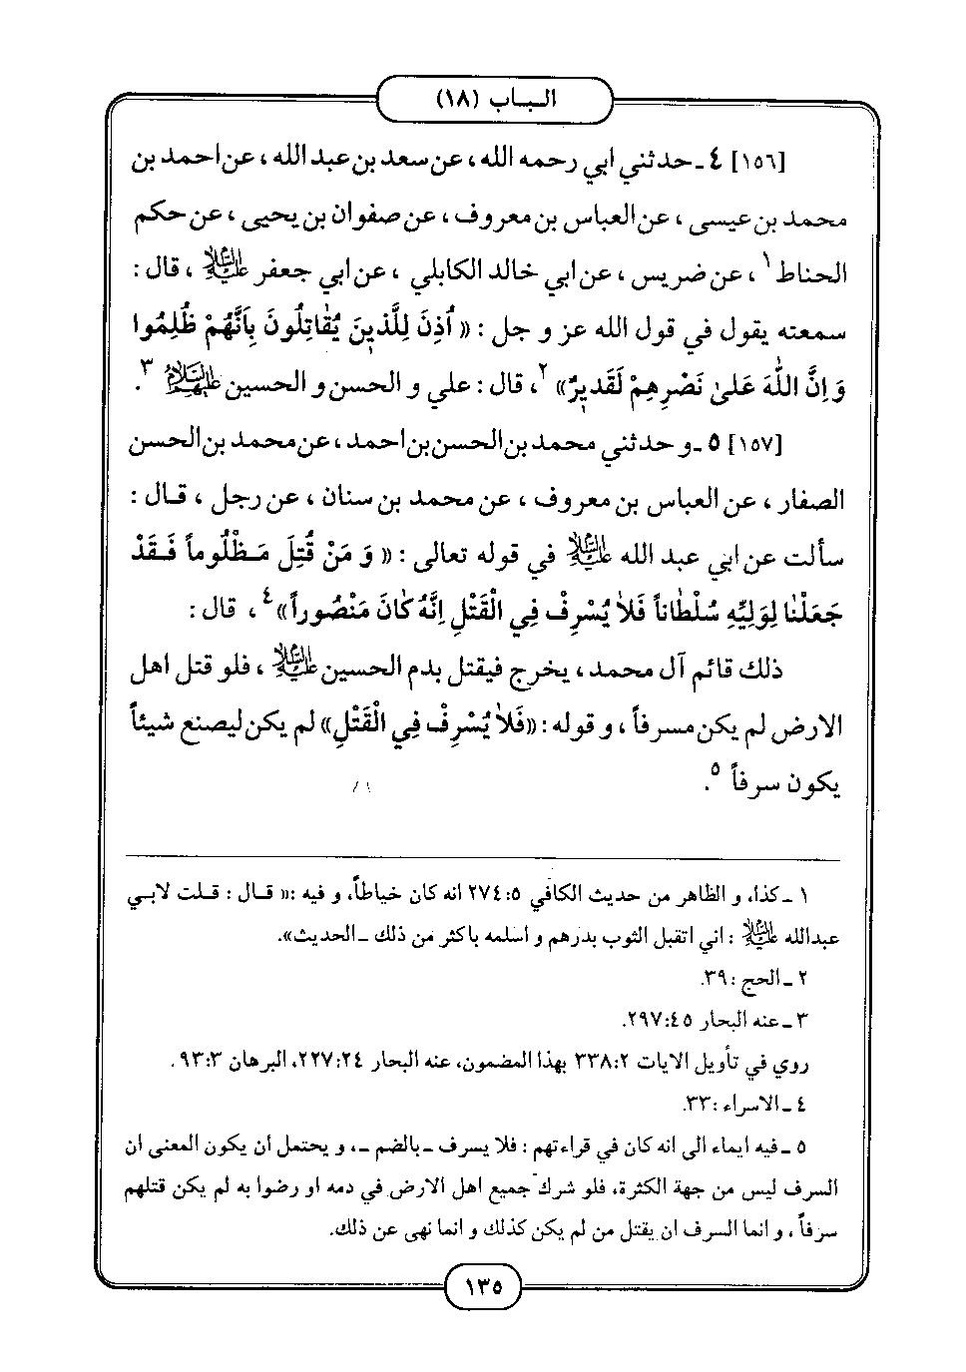 الـبـاب (١٨)
[١٥٦] ٤ ـ حدثني ابي رحمه الله ، عن سعد بن عبد الله ، عن احمد بن
محمد بن عيسى ، عن العباس بن معروف ، عن صفوان بن يحيى ، عن حكم
الحناط ١ ، عن ضريس ، عن ابي خالد الكابلي ، عن ابي جعفر عليه السلام ، قال :
سمعته يقول في قول الله عز و جل : « اُذِنَ لِلَّذينَ يُقٰاتِلُونَ بِاَنَّهُمْ ظُلِمُوا
وَ اِنَّ اللّٰهَ عَلىٰ نَصْرِهِمْ لَقَديرٌ» ٢، قال : علي و الحسن و الحسين عليهم السلام ٣.
[١٥٧] ٥ ـ و حدثني محمد بن الحسن بن احمد ، عن محمد بن الحسن
الصفار ، عن العباس بن معروف ، عن محمد بن سنان ، عن رجل ، قـال :
سألت عن ابي عبد الله عليه السلام في قوله تعالى : « وَ مَنْ قُتِلَ مَـظْلُوماً فَـقَدْ
جَعَلْنٰا لِوَلِيِّهِ سُلْطٰاناً فَلاٰ يُسْرِفْ فِي الْقَتْلِ اِنَّهُ كٰانَ مَنْصُوراً» ٤ ، قال :
ذلك قائم آل محمد ، يخرج فيقتل بدم الحسين عليه السلام ، فلو قتل اهل
الارض لم يكن مسرفاً ، و قوله : «فَلاٰ يُسْرِفْ فِي الْقَتْلِ» لم يكن ليصنع شيئاً
يكون سرفاً ٥.
١ ـ كذا، و الظاهر من حديث الكافي ٥:‏٢٧٤ انه كان خياطاً، و فيه :« قـال : قـلت لابـي
عبدالله عليه السلام : اني اتقبل الثوب بدرهم و اسلمه باكثر من ذلك ـ الحديث».
٢ ـ الحج : ٣٩.
٣ ـ عنه البحار ٤٥:‏٢٩٧.
روي في تأويل الايات ٢:‏٣٣٨ بهذا المضمون، عنه البحار ٢٤:‏٢٢٧، البرهان ٣:‏٩٣.
٤ ـ الاسراء : ٣٣.
٥ ـ فيه ايماء الى انه كان في قراءتهم : فلا يسرف ـ بالضم ـ، و يحتمل ان يكون المعنى ان
السرف ليس من جهة الكثرة، فلو شرك جميع اهل الارض في دمه او رضوا به لم يكن قتلهم
سرفاً ، و انما السرف ان يقتل من لم يكن كذلك و انما نهى عن ذلك.
١٣٥